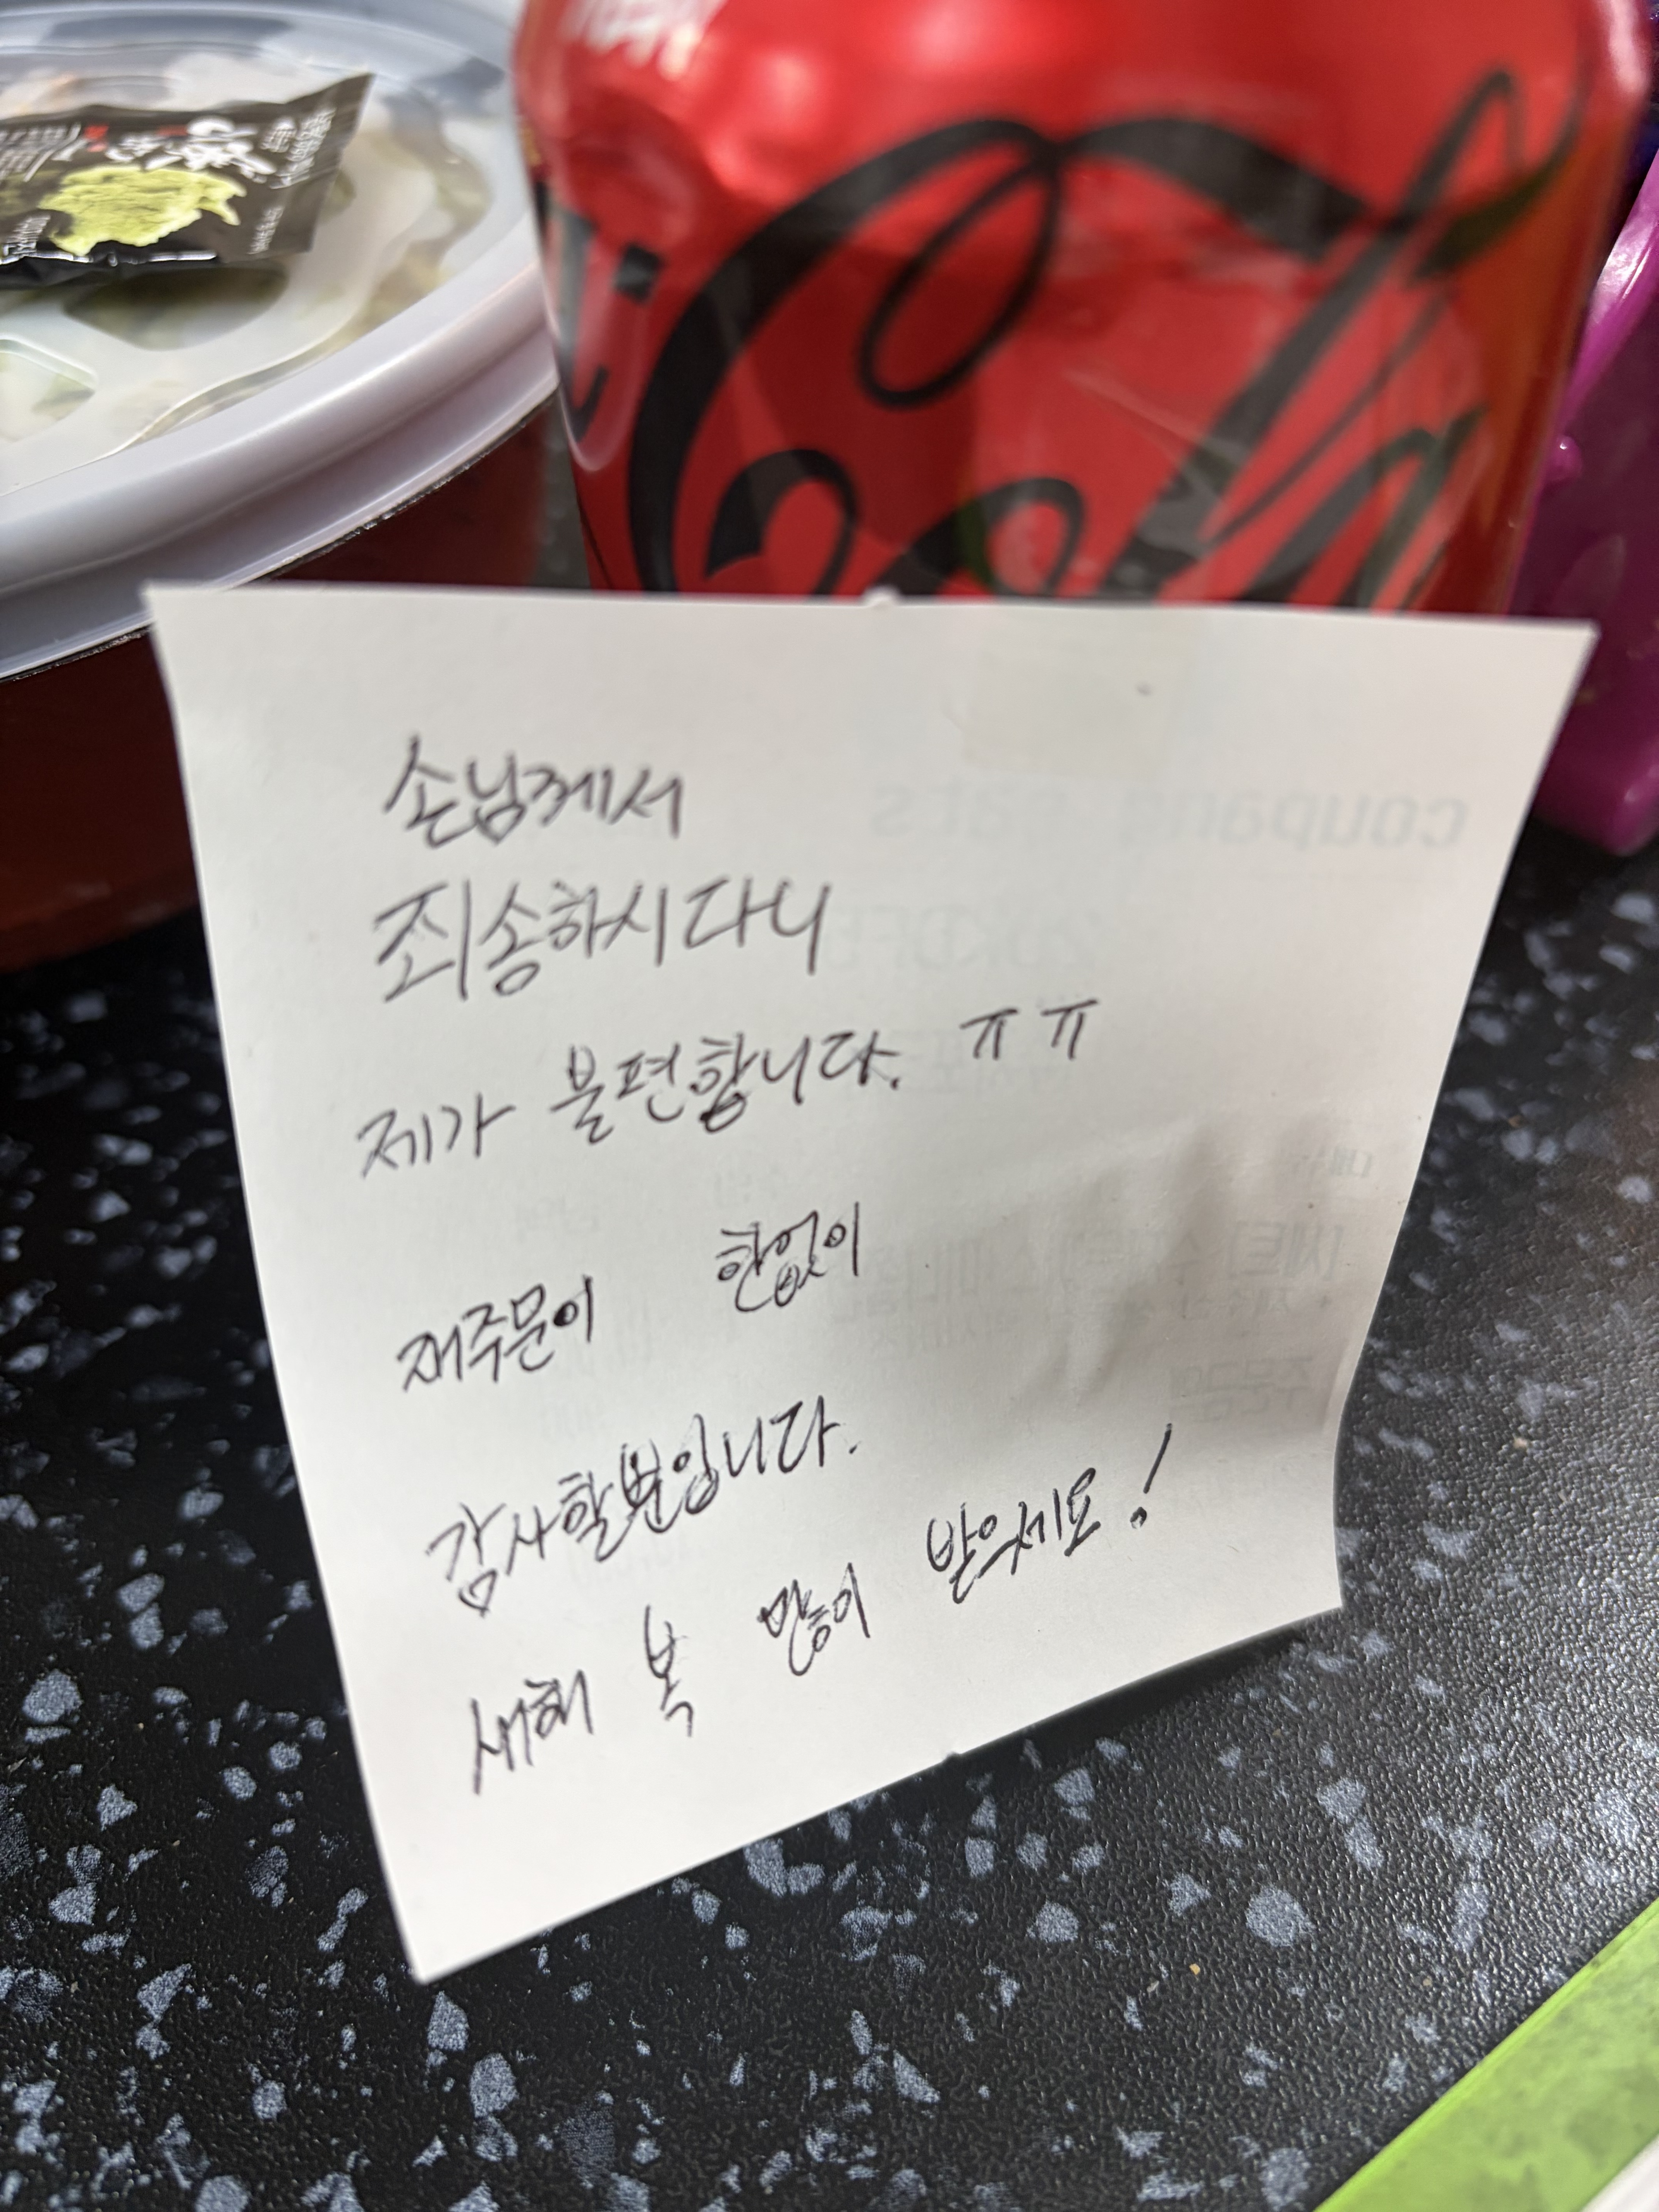 Col
손님께서
죄송하시다니
제가 불편합니다. ㅠㅠ
재주문이 한없이
감사할뿐입니다.
새해 복 많이 받으세요!
coupang eats